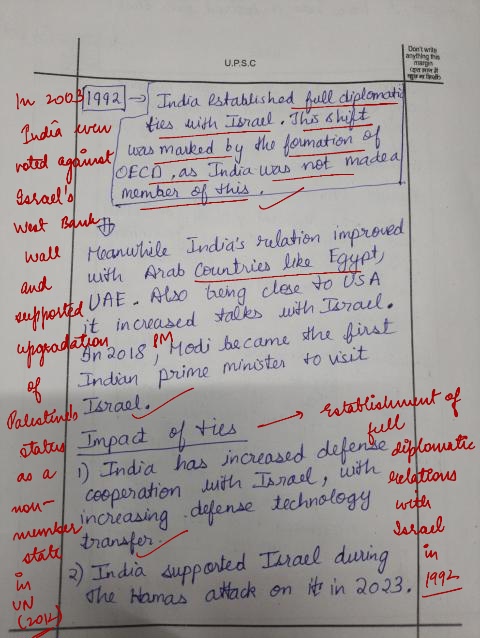 U.P.S.C
Don't write
anything this
margin
(इस भाग में
कुछ ना लिखें)
1992 → India established full diplomatic
ties with Israel. This shift
was marked by the formation of
OECD, as India was not made a
member of this.
Meanwhile India's relation improved
with Arab Countries like Egypt,
UAE. Also being close to USA
it increased talks with Israel.
In 2018, PM Modi became the first
Indian prime minister to visit
Israel.
Impact of ties
1) India has increased defense
cooperation with Israel, with
increasing defense technology
transfer.
2) India supported Israel during
the Hamas attack on it in 2023.
In 2003
India even
voted against
Israel's
West Bank
wall
and
supported
upgradation
of
Palestine's
status
as a
non-
member
state
in
UN
(2012)
→ Establishment of
full
diplomatic
relations
with
Israel
in
1992